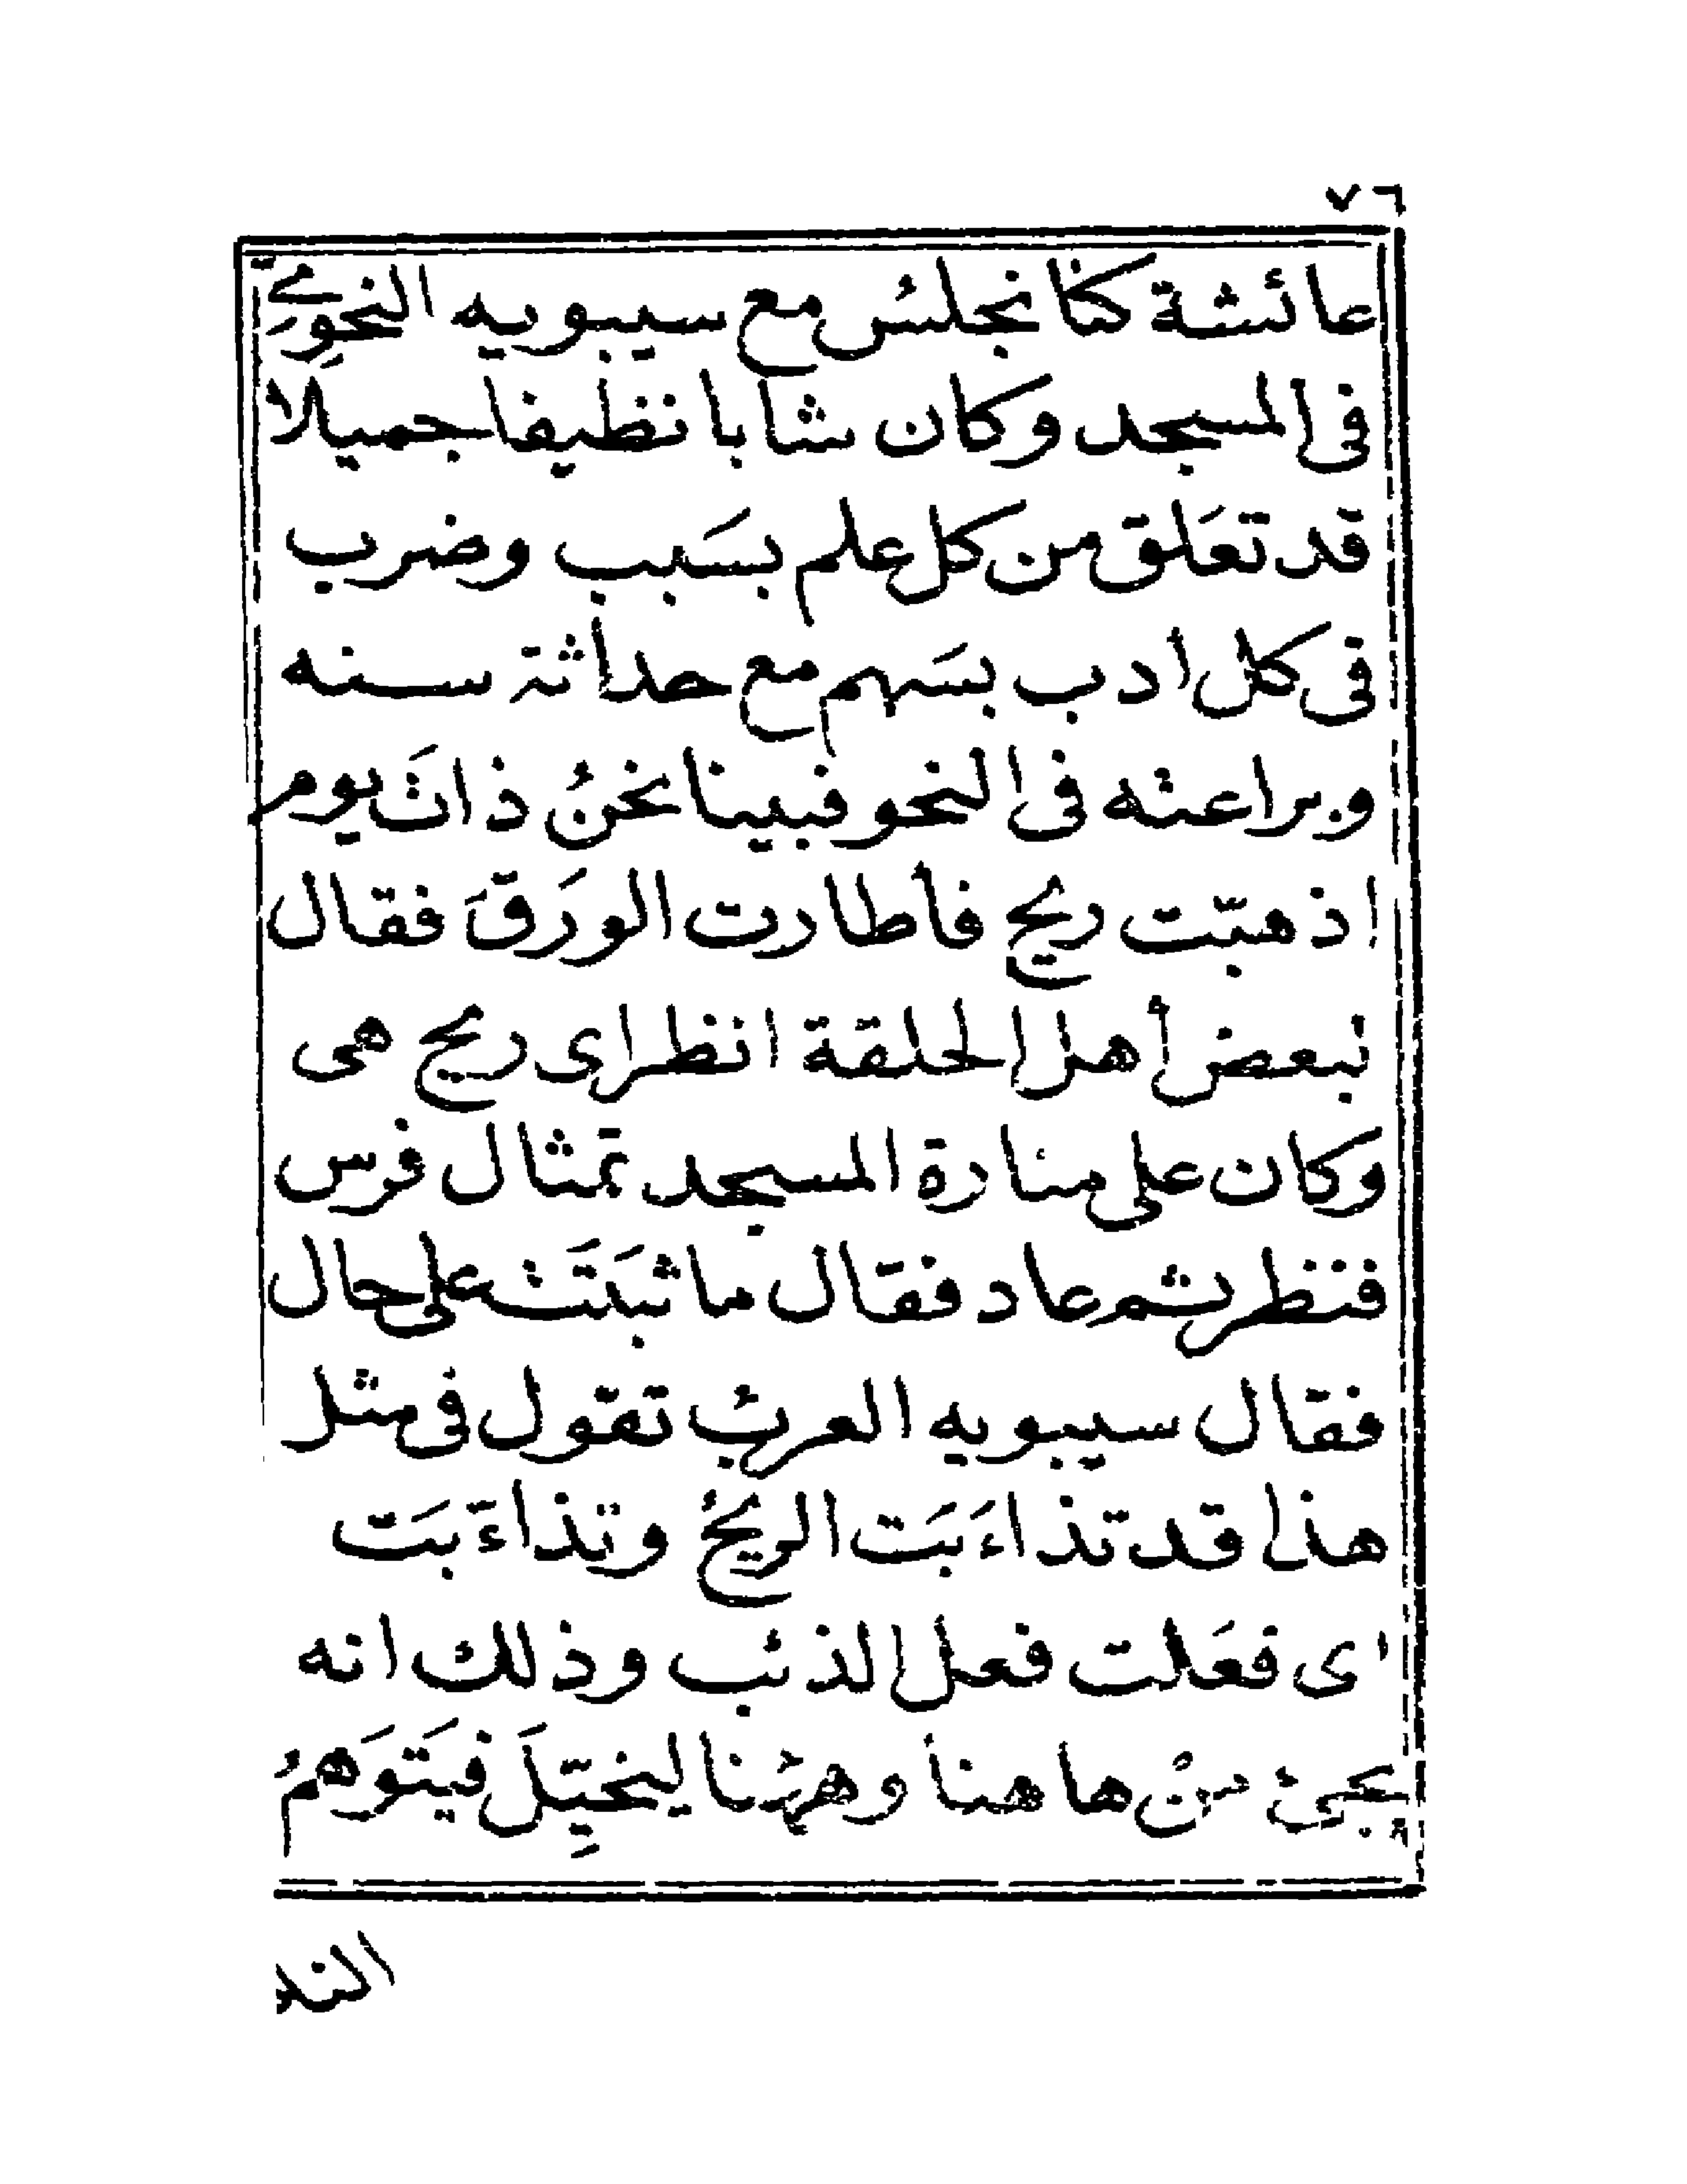 ٧٦
عائشة كنا نجلسُ مع سيبويه النحوِيّ
فى المسجد وكان شابا نظيفا جميلا
قد تعَلق من كل علم بسَبب وضرب
فى كل ادب بسَهم مع حداثة سنه
وبراعته فى النحو فبينا نحنُ ذاتَ يوم
اذ هبّت ريح فأطارت الورَقَ فقال
لبعض أهل الحلقة انظر اى ريح هى
وكان على منارة المسجد تمثال فرس
فنظر ثم عاد فقال ما ثبَتَت على حال
فقال سيبويه العربُ تقول فى مثل
هذا قد تذاءَبَت الريحُ وتذاءَبَت
اى فعَلت فعل الذئب وذلك انه
يجئ منْ ها هنا وههُنا ليخيِّلَ فيَتَوَهمُ